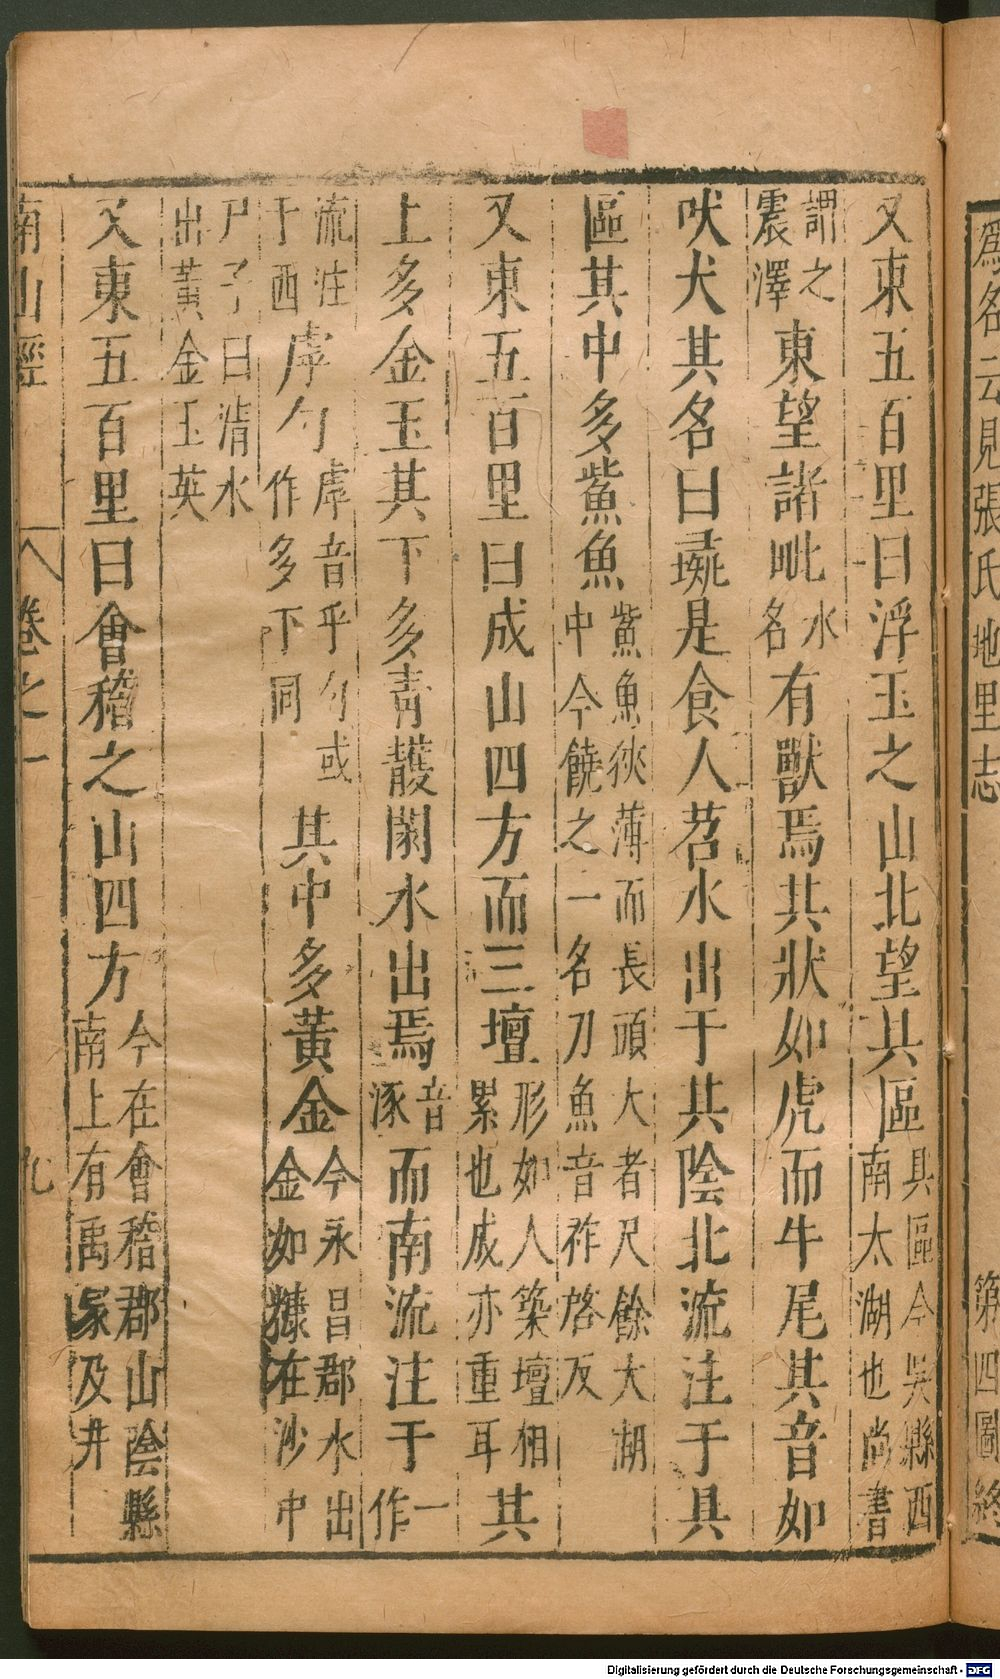 爲名云見張氏地里志
第四圖終
又東五百里曰浮玉之山北望具區具區今吳縣西南太湖也尚書
謂之震澤東望諸𣬈水名有獸焉其狀如虎而牛尾其音如
吠犬其名曰彘是食人苕水出于其陰北流注于具
區其中多鮆魚鮆魚狹薄而長頭大者尺餘大湖中今饒之一名刀魚音祚啓反
又東五百里曰成山四方而三壇形如人築壇相累也成亦重耳其
上多金玉其下多青雘䦘水出焉音涿而南流注于一作
流注于西虖勺虖音乎勺或作多下同其中多黃金今永昌郡水出金如糠在沙中
尸子曰清水出黃金玉英
又東五百里曰會稽之山四方今在會稽郡山陰縣南上有禹冢及井
南山經
卷之一
九
Digitalisierung gefördert durch die Deutsche Forschungsgemeinschaft - DFG